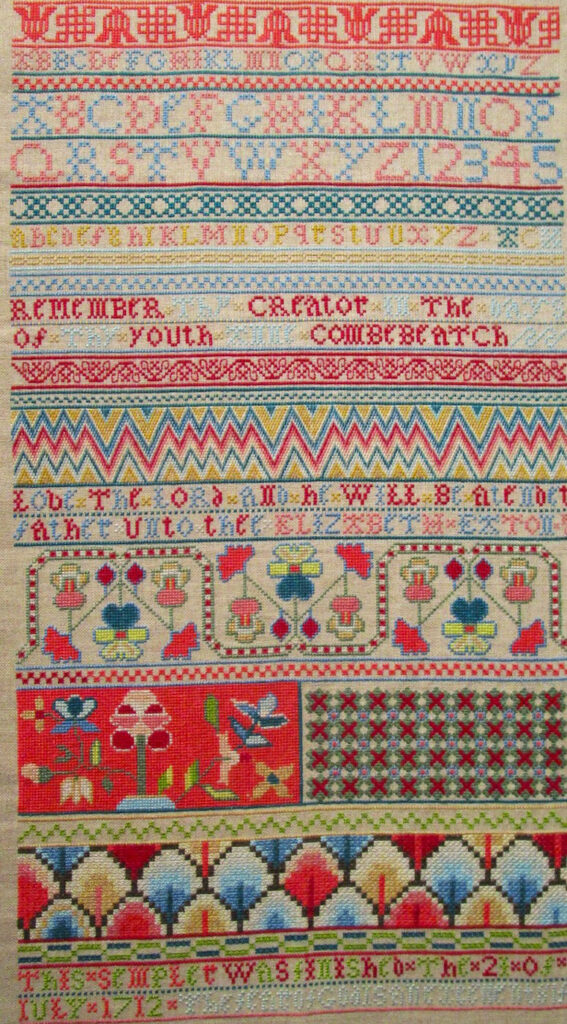 ABCDEFGHIKLMNOPQRSTVWXYZ
ABCDEFGHIKLMNOP
QRSTVWXYZ12345
abcdefghIKLMNOPqrstUUXYZ
REMEMBER THY CREATOR IN THE DAYS
Of THY YOUTH COMBEBEATCH
LOVE THE LORD AND HE WILL BE A TENDET
fATHEt UNtO tHEE ELIZABETH EXTON
THIS SEMPLER WAS fINISHED THE 21 Of
IULY 1712